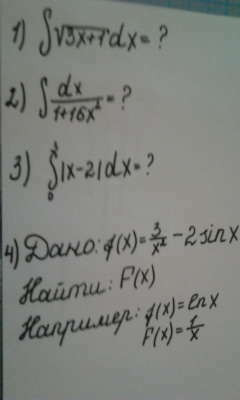 1) ∫√3x+7 dx = ?
2) ∫ dx/1+16x² = ?
3) ∫₀³ |x-2|dx = ?
4) Дано: f(x) = 3/x² - 2sinx
Найти: F(x)
Например: f(x) = lnx
F(x) = 1/x